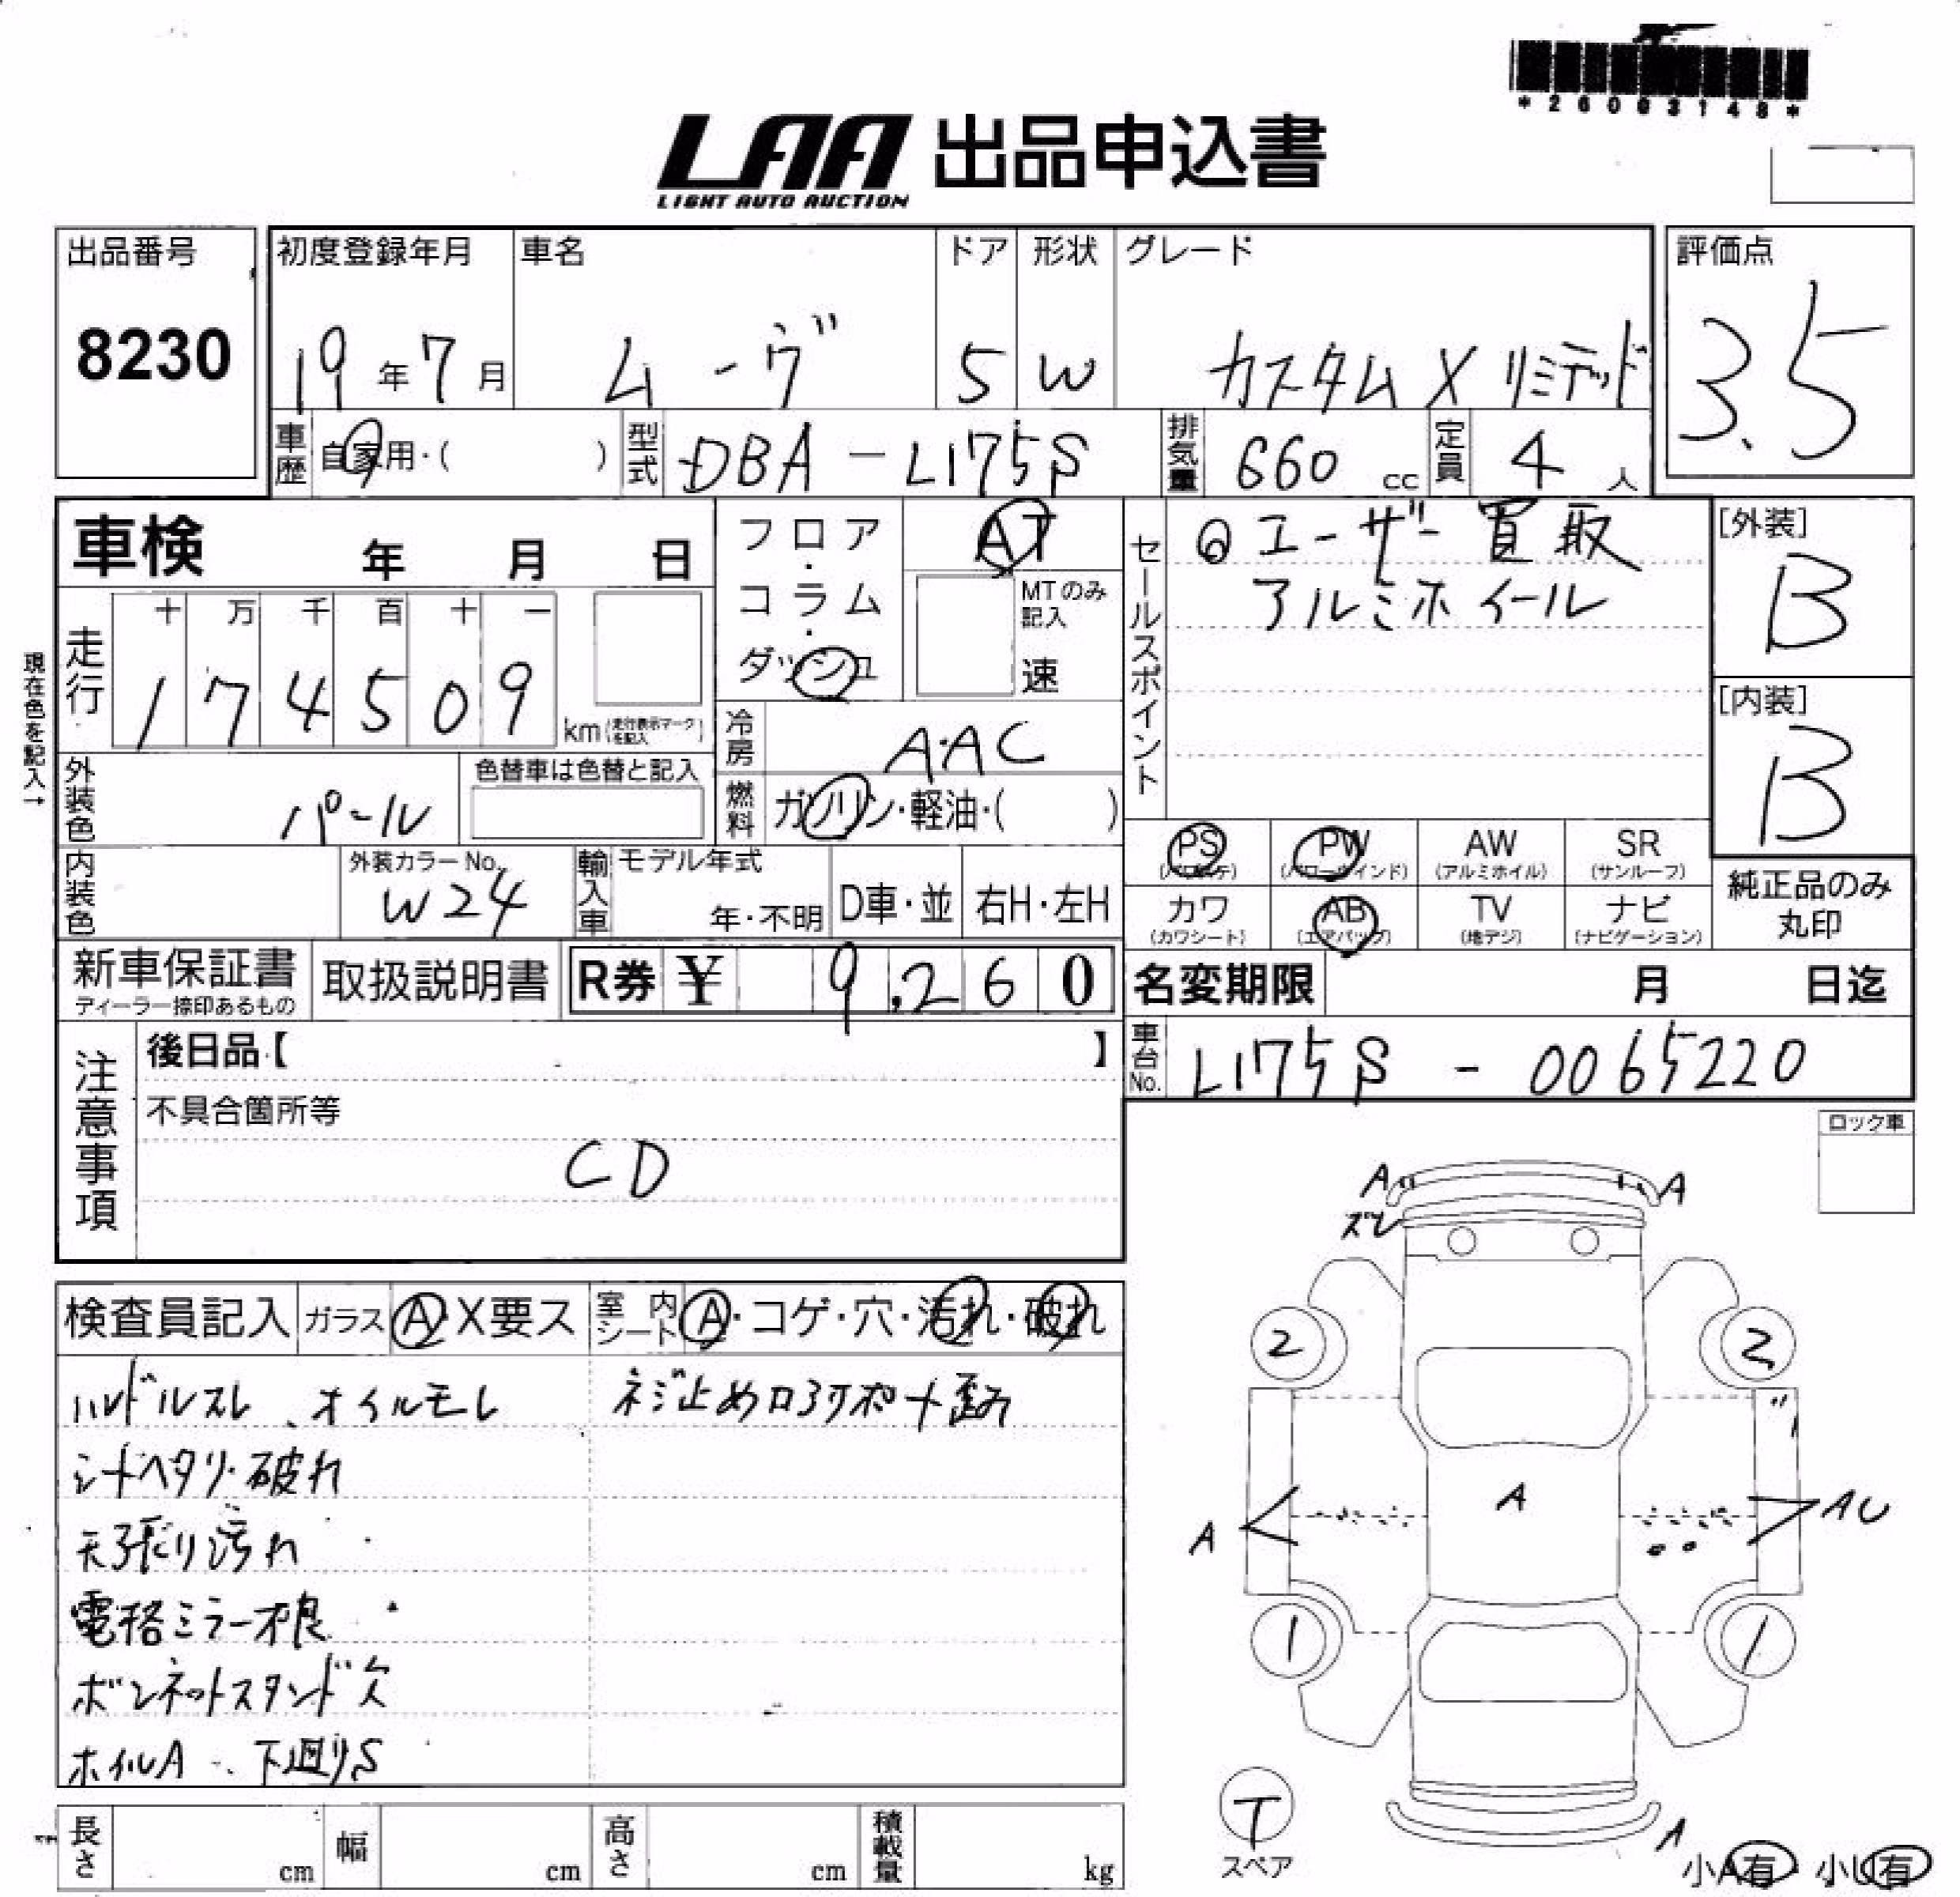 *26003148*
LAA 出品申込書
LIGHT AUTO AUCTION
出品番号 初度登録年月 車名 ドア 形状 グレード 評価点
8230 19年7月 ムーヴ 5 W カスタムXリミテッド 3.5
車歴 自家用・( ) 型式 DBA-L175S 排気量 660 cc 定員 4 人
車検 年 月 日
フロア・コラム・ダッシュ
AT
MTのみ記入
速
セールスポイント
◎ユーザー買取
アルミホイール
[外装]
B
[内装]
B
現在色を記入→
走行 十 万 千 百 十 一
1 7 4 5 0 9 km (走行表示マークを記入)
冷房 A.AC
外装色 パール 色替車は色替と記入
燃料 ガソリン・軽油・( )
内装色 外装カラーNo. W24
輸入車 モデル年式 年・不明 D車・並 右H・左H
PS PW AW SR
(パワステ) (パワーウインド) (アルミホイル) (サンルーフ)
カワ AB TV ナビ
(カワシート) (エアバッグ) (地デジ) (ナビゲーション)
純正品のみ
丸印
新車保証書 取扱説明書 R券 ¥ 9,260
ディーラー捺印あるもの
名変期限 月 日迄
車台No. L175S - 0065220
注意事項
後日品【 】
不具合箇所等
CD
ロック車
検査員記入 ガラス A・X要ス 室内シート A・コゲ・穴・汚れ・破れ
ハンドルスレ、オイルモレ
ネジ止めコアサポート歪み
シートヘタリ・破れ
天張り汚れ
電格ミラー不良
ボンネットスタンド欠
ホイルA 下廻りS
A A
ズレ
2 2
A
A AU
1 1
T
スペア
A
小A有・小U有
長さ cm 幅 cm 高さ cm 積載量 kg